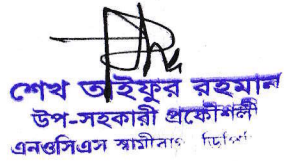 শেখ তাইফুর রহমান
উপ-সহকারী প্রকৌশলী
এনওসিএস স্বামীবাগ